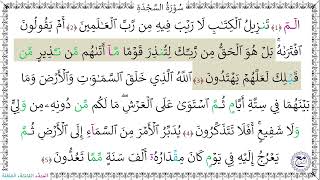 سُورَةُ السَّجْدَةِ
الٓمٓ (١) تَنزِيلُ ٱلْكِتَٰبِ لَا رَيْبَ فِيهِ مِن رَّبِّ ٱلْعَٰلَمِينَ (٢) أَمْ يَقُولُونَ
ٱفْتَرَىٰهُ ۚ بَلْ هُوَ ٱلْحَقُّ مِن رَّبِّكَ لِتُنذِرَ قَوْمًا مَّآ أَتَىٰهُم مِّن نَّذِيرٍ مِّن
قَبْلِكَ لَعَلَّهُمْ يَهْتَدُونَ (٣) ٱللَّهُ ٱلَّذِى خَلَقَ ٱلسَّمَٰوَٰتِ وَٱلْأَرْضَ وَمَا
بَيْنَهُمَا فِى سِتَّةِ أَيَّامٍ ثُمَّ ٱسْتَوَىٰ عَلَى ٱلْعَرْشِ ۖ مَا لَكُم مِّن دُونِهِۦ مِن وَلِىٍّ
وَلَا شَفِيعٍ ۚ أَفَلَا تَتَذَكَّرُونَ (٤) يُدَبِّرُ ٱلْأَمْرَ مِنَ ٱلسَّمَآءِ إِلَى ٱلْأَرْضِ ثُمَّ
يَعْرُجُ إِلَيْهِ فِى يَوْمٍ كَانَ مِقْدَارُهُۥٓ أَلْفَ سَنَةٍ مِّمَّا تَعُدُّونَ (٥)